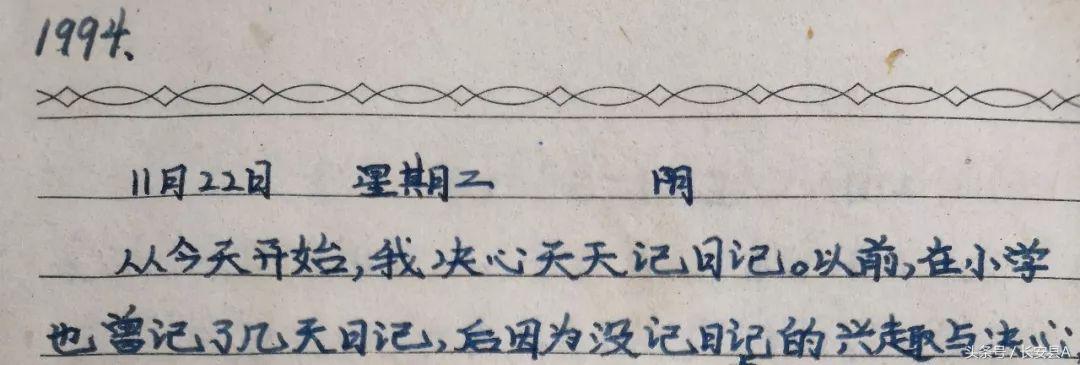 1994.
11月22日 星期二 阴
从今天开始,我决心天天记日记。以前,在小学
也曾记了几天日记,后因为没记日记的兴趣与决心,
头条号/长安县A